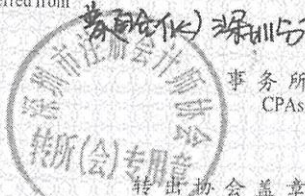 erred from
深圳分
事务所
CPAs
深圳市注册会计师协会
转所(会)专用章
转出协会盖章